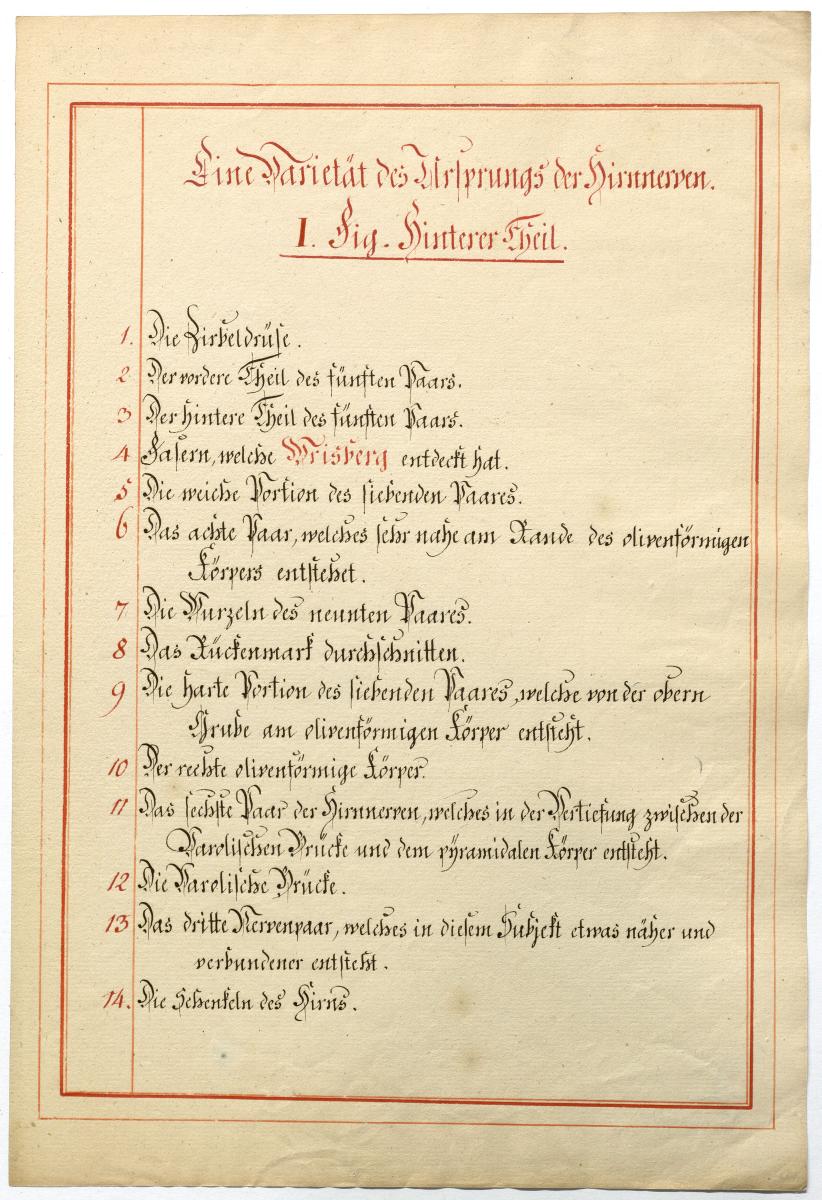 Eine Varietät des Ursprungs der Hirnnerven.
I. Fig. Hinterer Theil.
1. Die Zirbeldrüse.
2 Der vordere Theil des fünften Paars.
3 Der hintere Theil des fünften Paars.
4 Fasern, welche Wrisberg entdeckt hat.
5 Die weiche Portion des siebenden Paares.
6 Das achte Paar, welches sehr nahe am Rande des olivenförmigen
Körpers entstehet.
7 Die Wurzeln des neunten Paares.
8 Das Rückenmark durchschnitten.
9 Die harte Portion des siebenden Paares, welche von der obern
Grube am olivenförmigen Körper entsteht.
10 Der rechte olivenförmige Körper.
11 Das sechste Paar der Hirnnerven, welches in der Vertiefung zwischen der
Varolischen Brücke und dem pÿramidalen Körper entsteht.
12 Die Varolische Brücke.
13 Das dritte Nervenpaar, welches in diesem Subjekt etwas näher und
verbundener entsteht.
14. Die Schenkeln des Hirns.